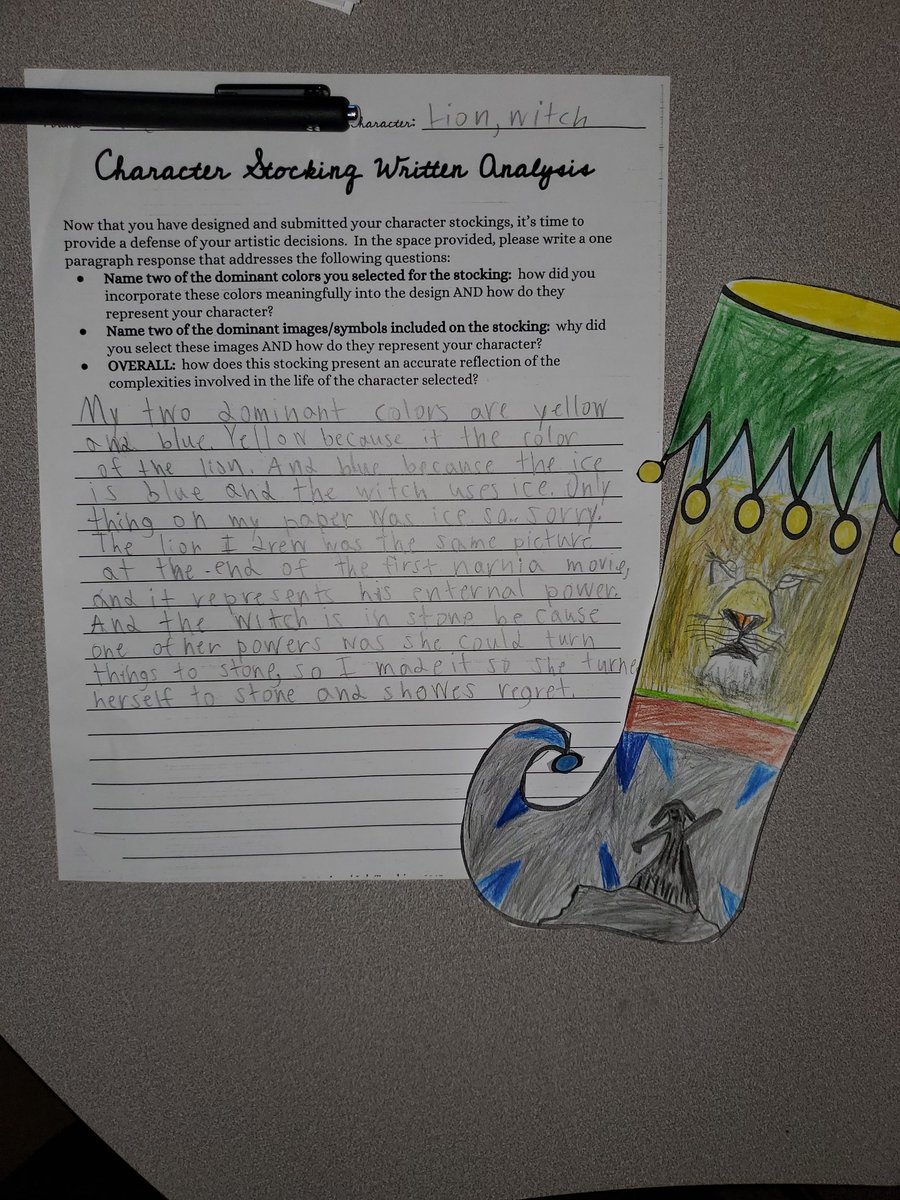 Character: Lion, witch
Character Stocking Written Analysis
Now that you have designed and submitted your character stockings, it's time to
provide a defense of your artistic decisions. In the space provided, please write a one
paragraph response that addresses the following questions:
● Name two of the dominant colors you selected for the stocking: how did you
incorporate these colors meaningfully into the design AND how do they
represent your character?
● Name two of the dominant images/symbols included on the stocking: why did
you select these images AND how do they represent your character?
● OVERALL: how does this stocking present an accurate reflection of the
complexities involved in the life of the character selected?
My two dominant colors are yellow
and blue. Yellow because it the color
of the lion. And blue because the ice
is blue and the witch uses ice. Only
thing on my paper was ice so.. sorry!
The lion I drew was the same picture
at the end of the first narnia movie,
and it represents his enternal power.
And the witch is in stone be cause
one of her powers was she could turn
things to stone, so I made it so she turne
herself to stone and showes regret.